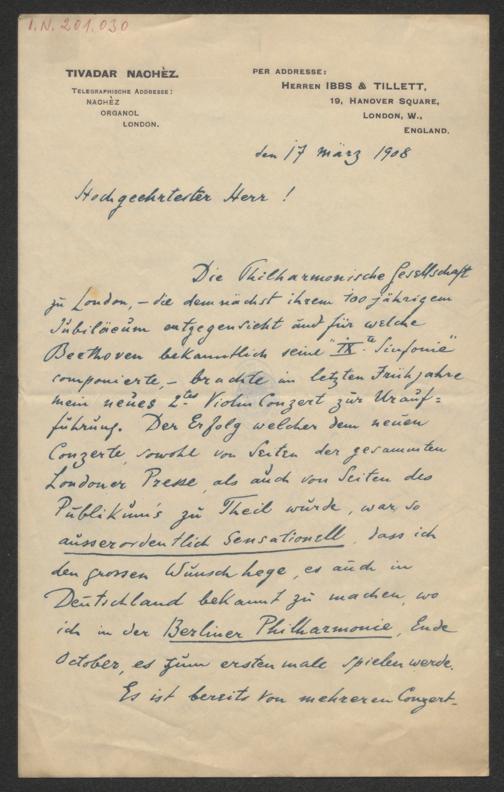 I.N. 201.030
TIVADAR NACHÈZ.
TELEGRAPHISCHE ADDRESSE:
NACHÈZ
ORGANOL
LONDON.
PER ADDRESSE:
HERREN IBBS & TILLETT,
19, HANOVER SQUARE,
LONDON, W.,
ENGLAND.
den 17 März 1908
Hochgeehrtester Herr !
Die Philharmonische Gesellschaft
zu London, – die demnächst ihrem 100 jährigem
Jubiläeum entgegensieht und für welche
Beethoven bekanntlich seine "IXte Sinfonie"
componierte, – brachte im letzten Frühjahre
mein neues 2tes Violin Conzert zur Urauf-
führung. Der Erfolg welcher dem neuen
Conzerte, sowohl von Seiten der gesammten
Londoner Presse, als auch von Seiten des
Publikum's zu Theil wurde, war so
ausserordentlich sensationell, dass ich
den grossen Wunsch hege, es auch in
Deutschland bekannt zu machen, wo
ich in der Berliner Philharmonie, Ende
October, es zum ersten male spielen werde.
Es ist bereits von mehreren Conzert-